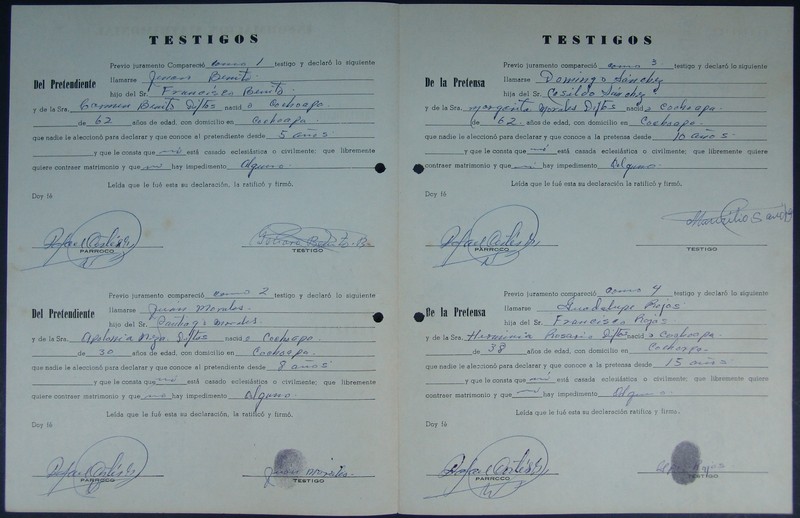 TESTIGOS
Previo juramento Compareció como 1 testigo y declaró lo siguiente
Del Pretendiente llamarse Benito.
hijo del Sr. Francisco Benito
y de la Sra. Carmen Benito Dftos nacid o Cochoapa
de 62 años de edad, con domicilio en Cochoapa
que nadie le aleccionó para declarar y que conoce al pretendiente desde 5 años
y que le consta que no está casado eclesiástica o civilmente; que libremente
quiere contraer matrimonio y que no hay impedimento Alguno.
Leída que le fué esta su declaración, la ratificó y firmó.
Doy fé
Rafael Cortés
PARROCO
TESTIGO
Previo juramento compareció como 2 testigo y declaró lo siguiente
Del Pretendiente llamarse Juan Morales
hijo del Sr. Morales.
y de la Sra. Apolonia Dftos nacid o Cochoapa
de 30 años de edad, con domicilio en Cochoapa
que nadie le aleccionó para declarar y que conoce al pretendiente desde 8 años
y que le consta que no está casado eclesiástica o civilmente; que libremente
quiere contraer matrimonio y que no hay impedimento Alguno
Leída que le fué esta su declaración, la ratificó y firmó.
Doy fé
Rafael Cortés
PARROCO
Juan Morales
TESTIGO
TESTIGOS
Previo juramento compareció como 3 testigo y declaró lo siguiente
De la Pretensa llamarse Domingo Sánchez
hija del Sr. Sánchez
y de la Sra. Margarita Morales Dftos nacid o Cochoapa
de 62 años de edad, con domicilio en Cochoapa
que nadie le aleccionó para declarar y que conoce a la pretensa desde 10 años.
y que le consta que no está casado eclesiástica o civilmente; que libremente quiere
contraer matrimonio y que no hay impedimento Alguno
Leída que le fué esta su declaración, la ratificó y firmó.
Doy fé
Rafael Cortés
PARROCO
TESTIGO
Previo juramento compareció como 4 testigo y declaró lo siguiente
De la Pretensa llamarse Guadalupe Rojas
hija del Sr. Francisco Rojas
y de la Sra. Herminia Rosario Dftos nacid o Cochoapa
de 38 años de edad, con domicilio en Cochoapa
que nadie le aleccionó para declarar y que conoce a la pretensa desde 15 años
y que le consta que no está casada eclesiástica o civilmente; que libremente quiere
contraer matrimonio y que no hay impedimento Alguno
Leída que le fué esta su declaración la ratifica y firma.
Doy fé
Rafael Cortés
PARROCO
Rojas
TESTIGO